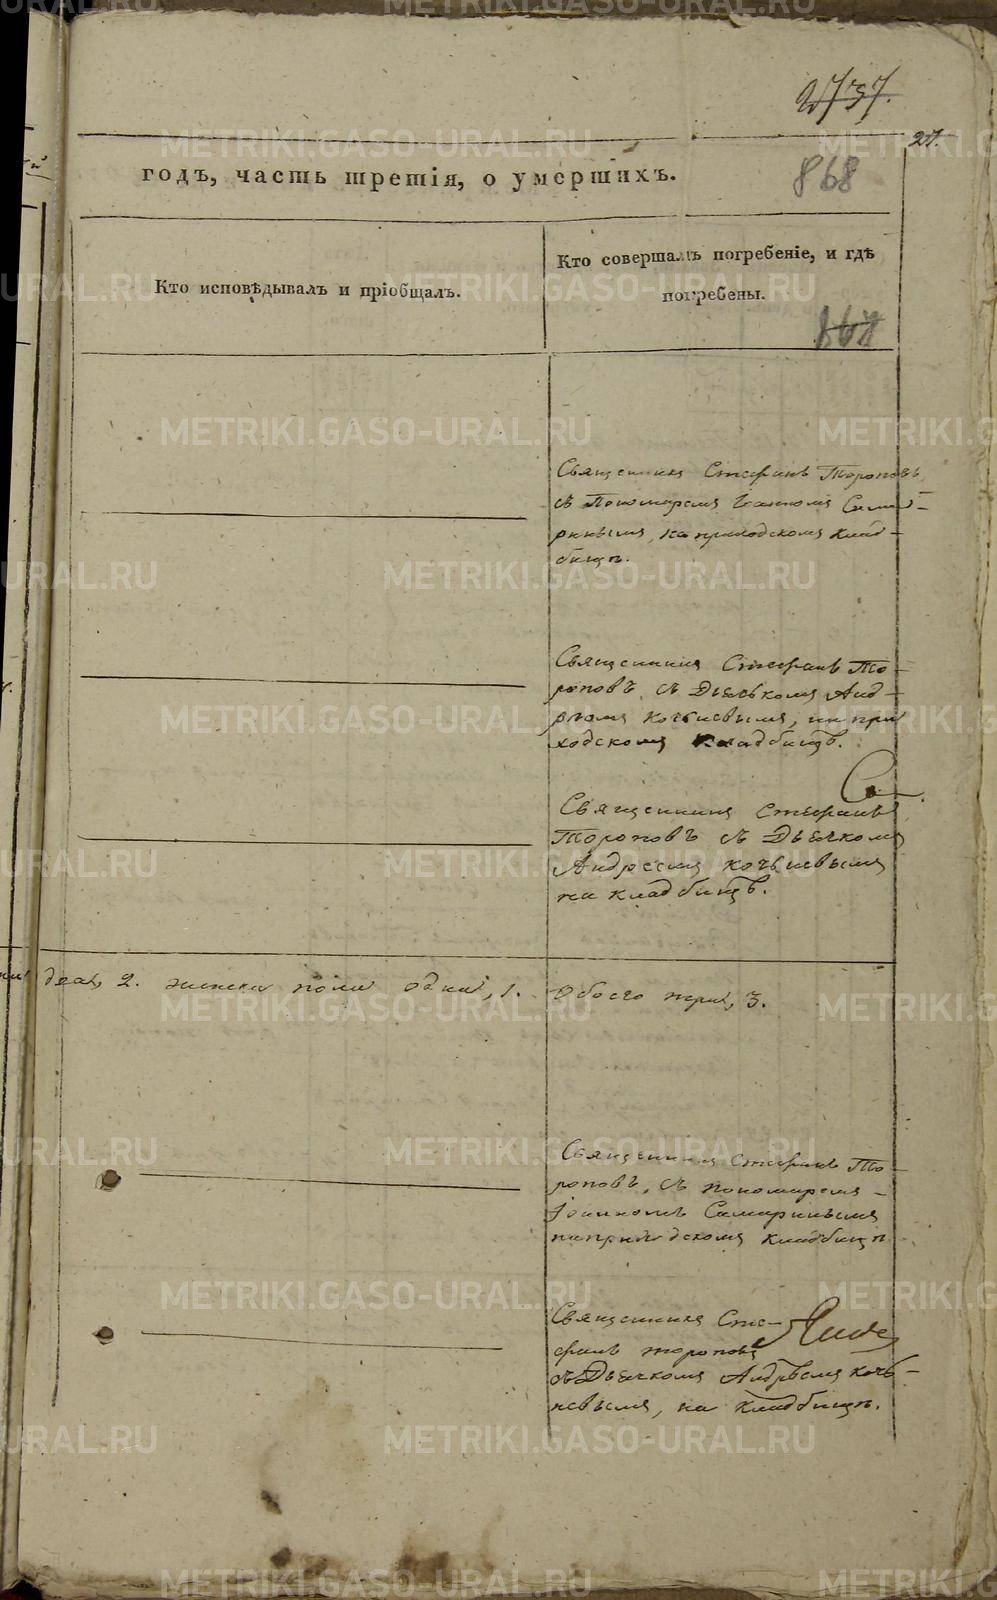 2737.
27.
годъ, часть третія, о умершихъ.
868
Кто исповѣдывалъ и пріобщалъ.
Кто совершалъ погребеніе, и гдѣ
погребены.
868
Священникъ Стефанъ Тороповъ,
съ Пономаремъ Іоанномъ Сама-
ринымъ, на приходскомъ клад-
бищѣ.
Священникъ Стефанъ То-
роповъ, съ Дьячкомъ Анд-
реомъ Кочневымъ, на при
ходскомъ кладбищѣ.
Священникъ Стефанъ
Тороповъ съ Дьячкомъ
Андреемъ Кочневымъ
на кладбищѣ.
два, 2. женска пола одна, 1. Обоего три, 3.
Священникъ Стефанъ То-
роповъ, съ Пономаремъ
Іоанномъ Самаринымъ
на приходскомъ кладбищѣ
Священникъ Сте-
фанъ Тороповъ
съ Дьячкомъ Андрѣемъ Коч-
невымъ, на кладбищѣ.
METRIKI.GASO-URAL.RU